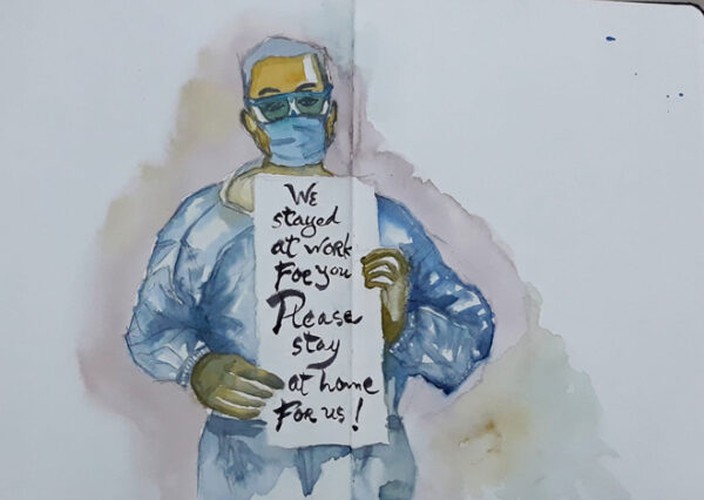 WE
stayed
at work
For you
Please
stay
at home
For us!